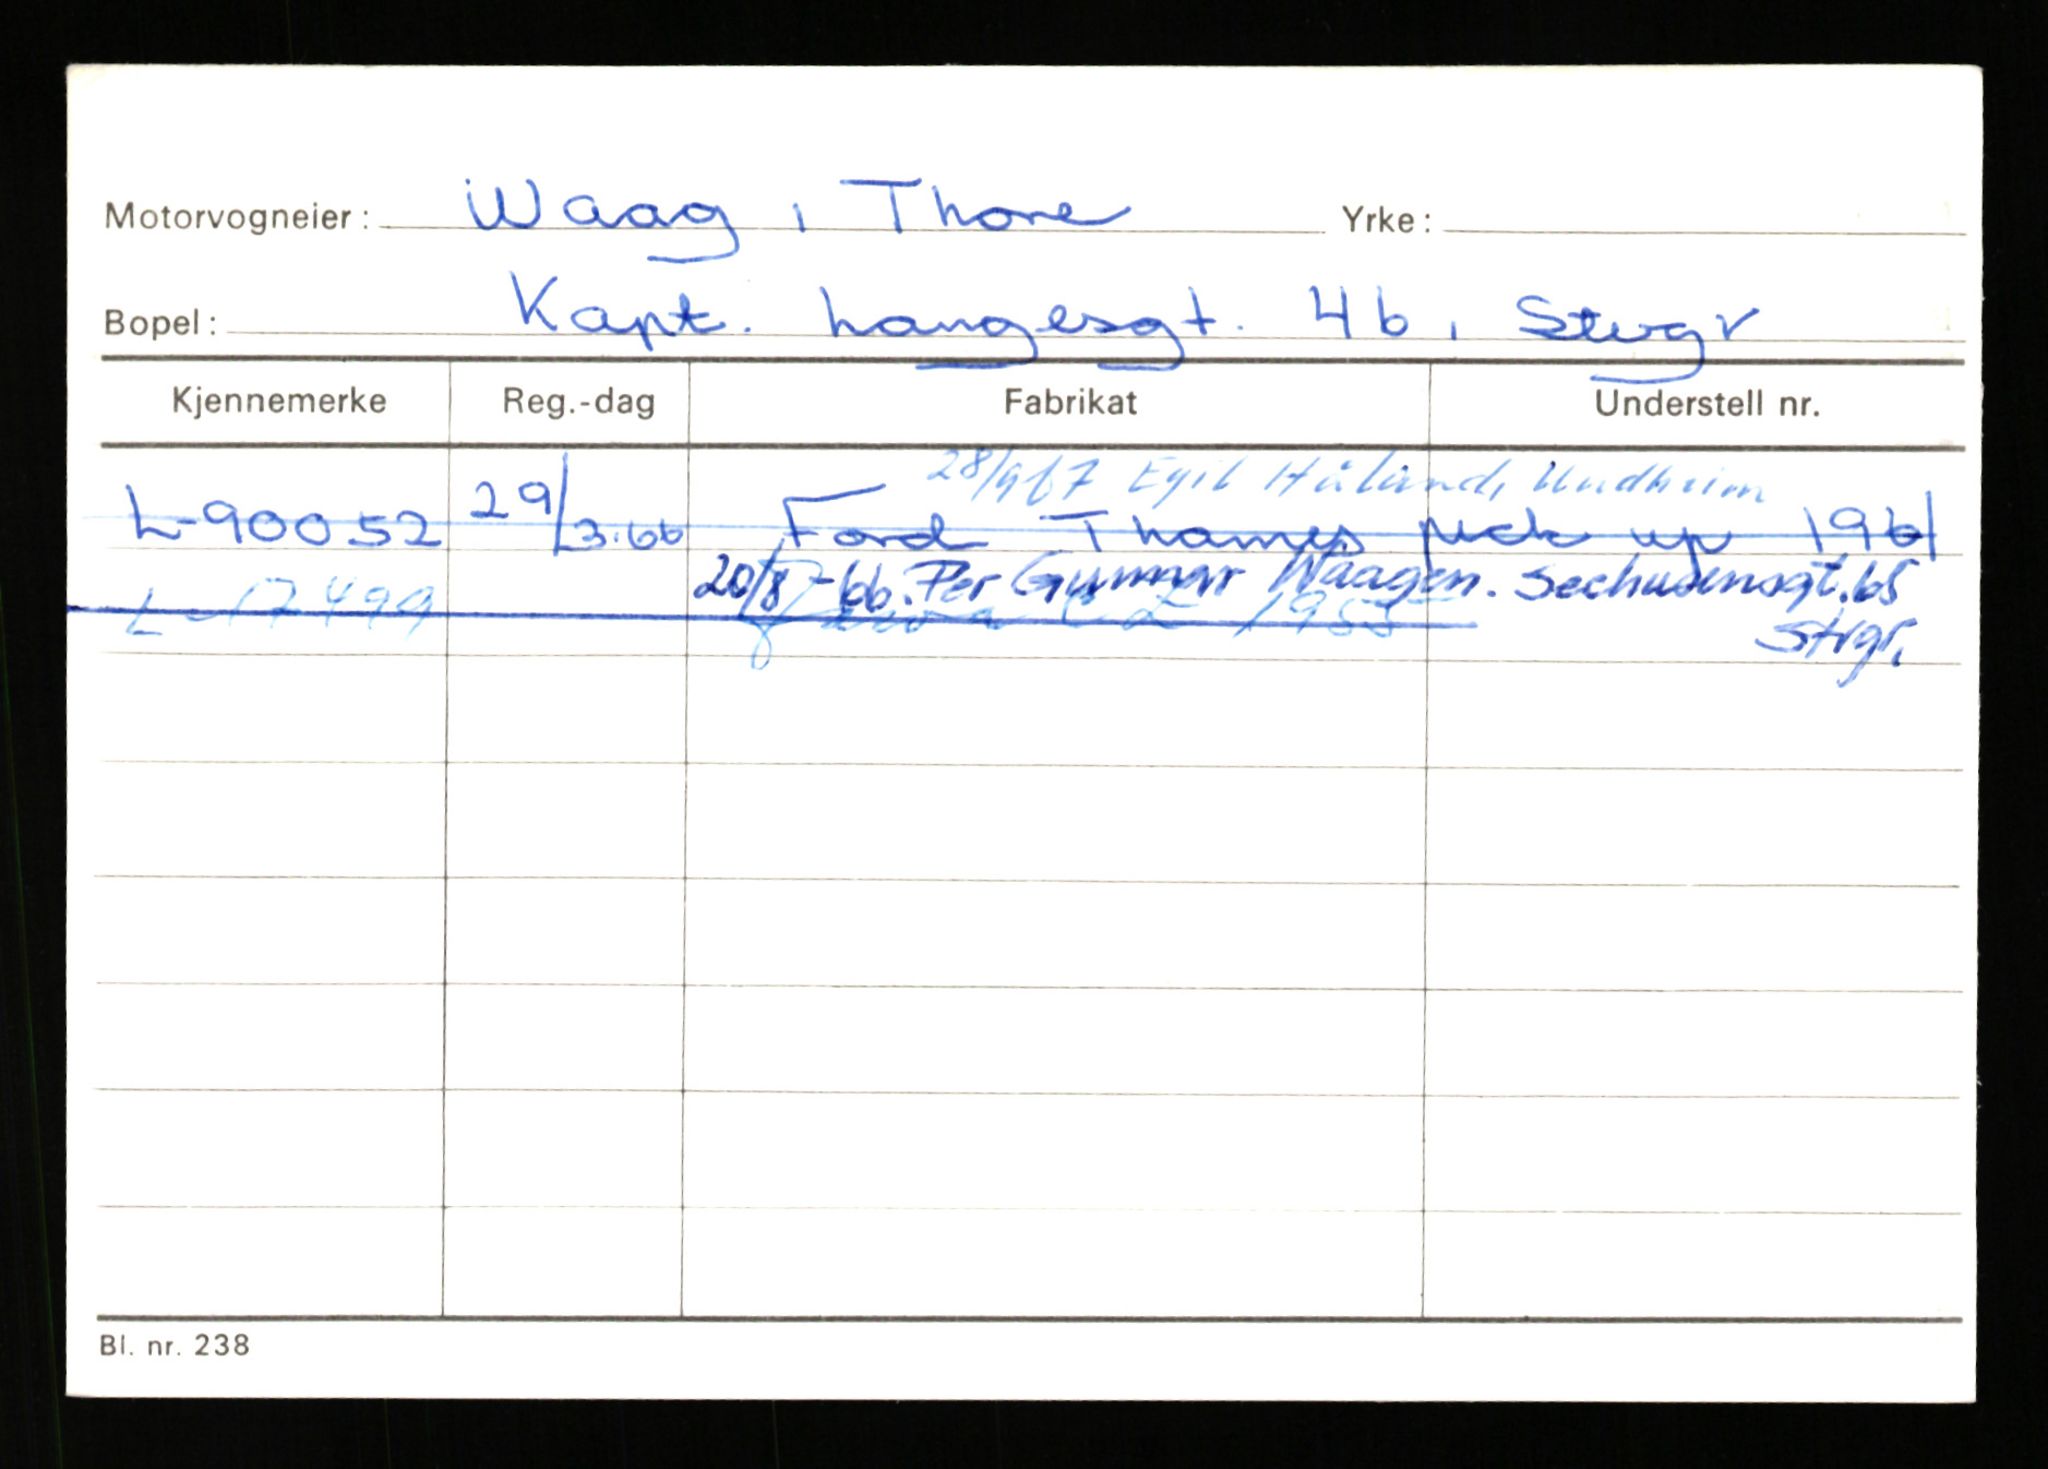 Motorvogneier: Waag, Thore Yrke:
Bopel: Kapt. Langesgt. 4b, Stvgr
Kjennemerke Reg.-dag Fabrikat Understell nr.
28/9 67 Egil Håland, Undheim
L-90052 29/3.66 Ford Thames pick up 1961
20/8-66. Per Gunnar Waagen. Sechusensgt. 65
L-17499 1955
Stvgr.
Bl. nr. 238